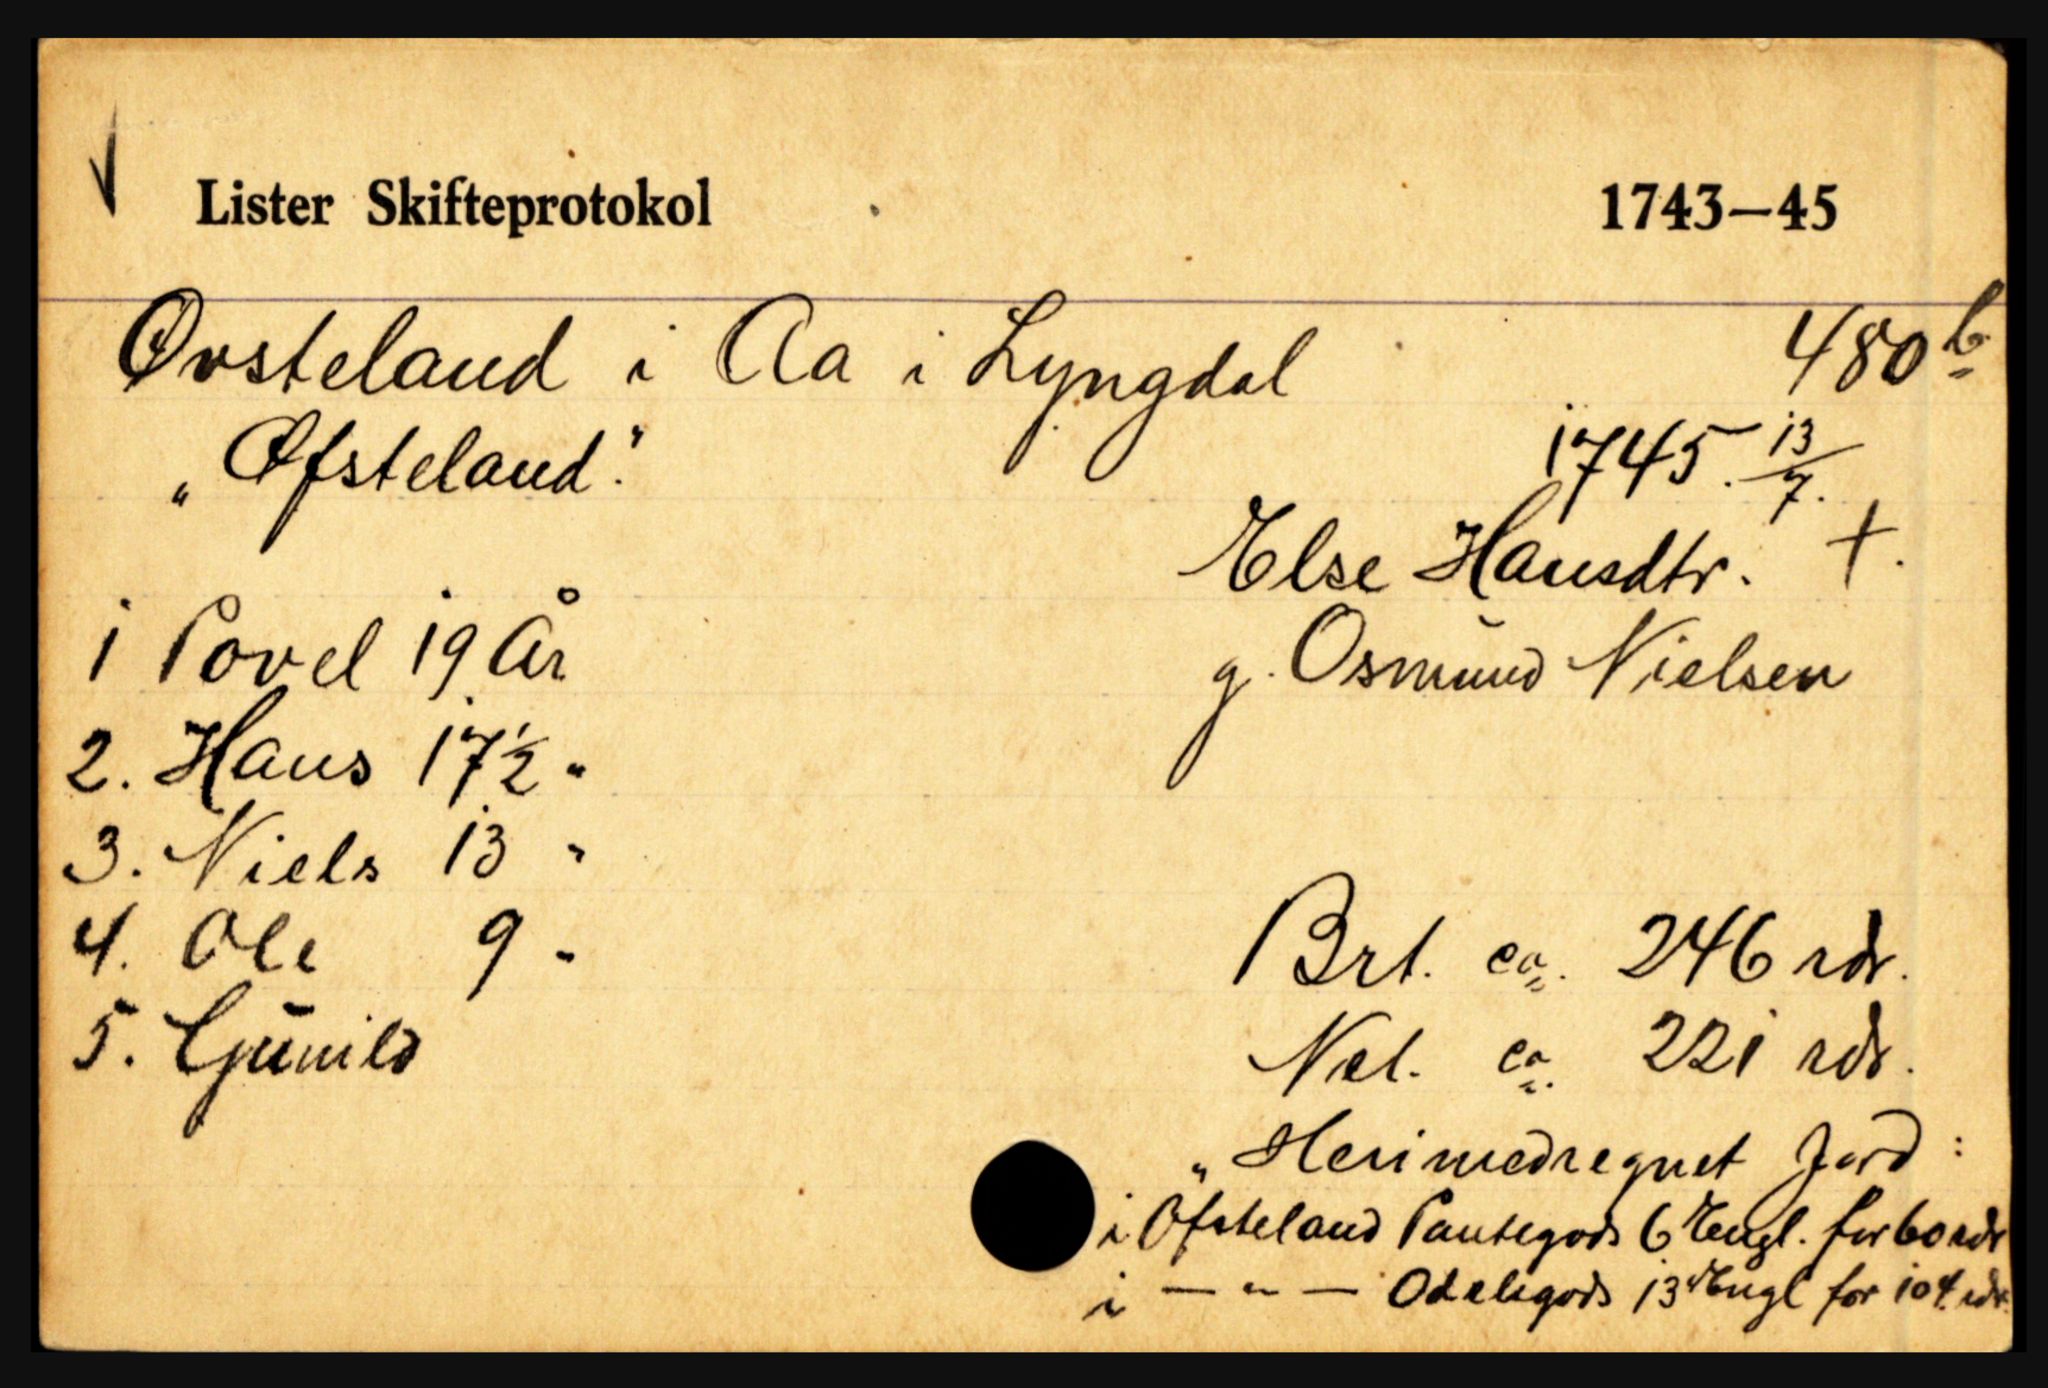 Lister Skifteprotokol 1743—45
Øvsteland i Aa i Lyngdal 480b
„Øfsteland." 1745. 13/7.
Else Hansdtr. †.
1 Povel 19 År g. Osmund Nielsen
2. Hans 17 1/2 "
3. Niels 13 "
4. Ole 9 "
Brt. ca. 246 rdr.
5. Gunild
Net. ca. 221 rdr.
„Heri medregnet Jord:
i Øfsteland Pantegods 6 Engl. for 60 rdr
i — " — Odelsgods 13 Engl for 104 rdr.